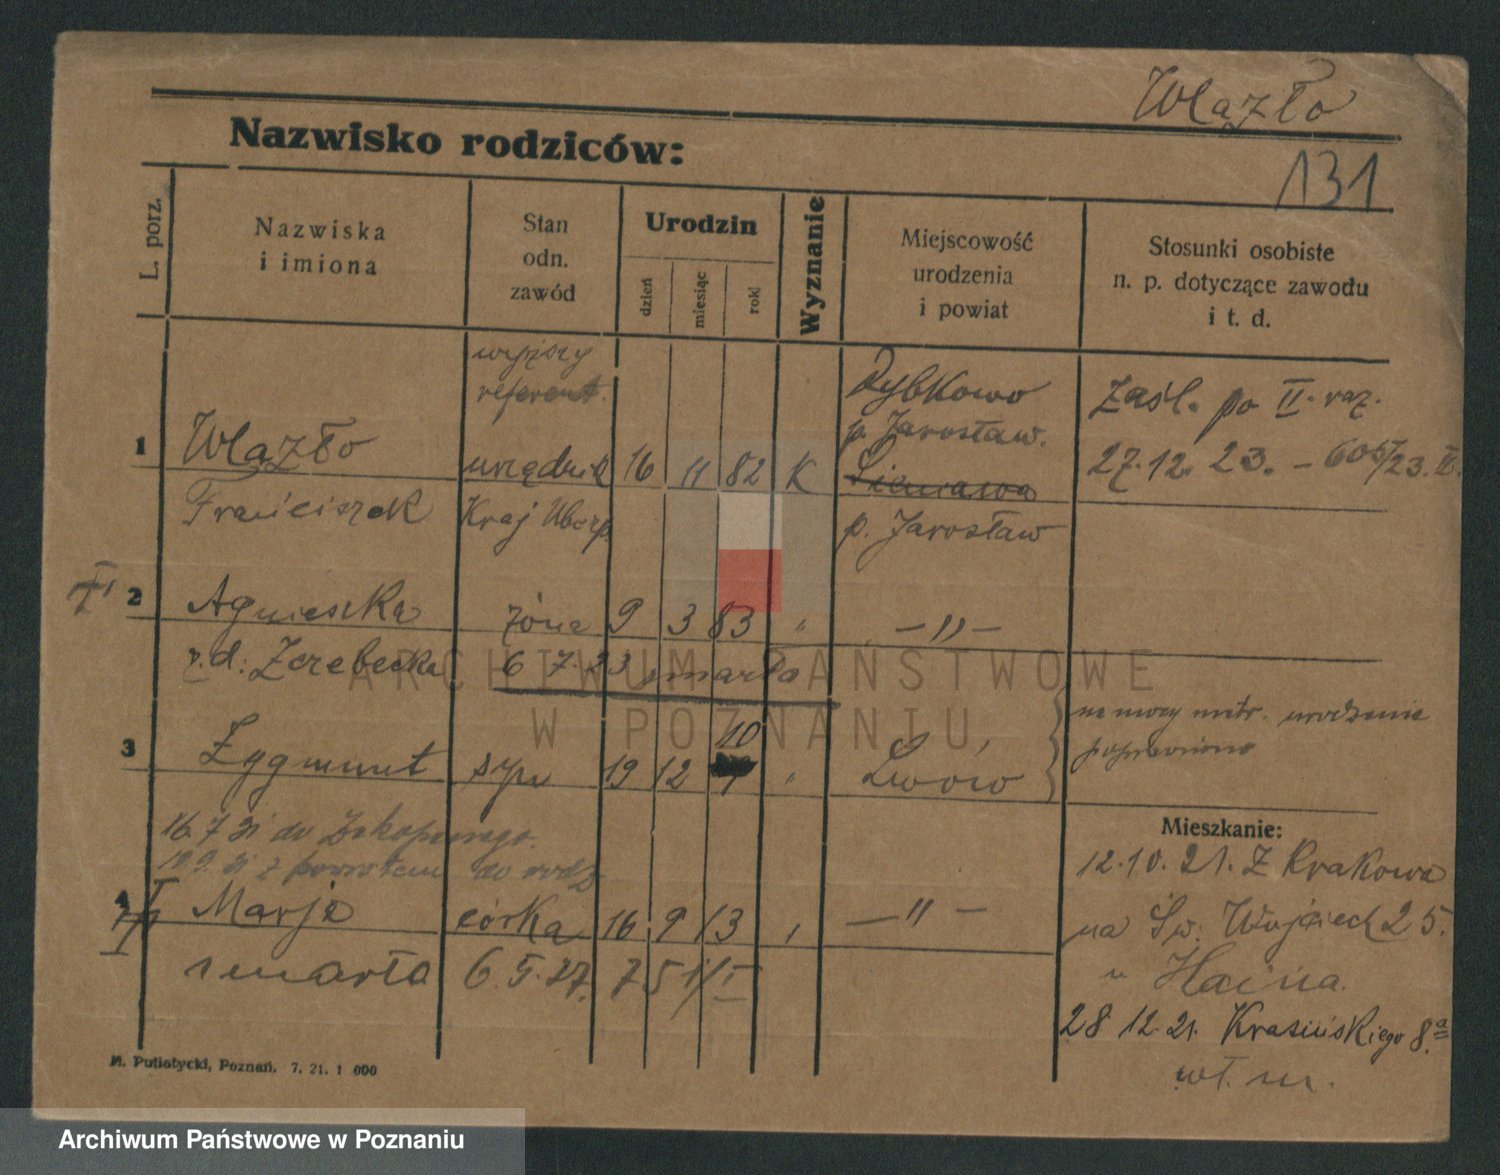 Wlazło
Nazwisko rodziców:
131
L. porz.
Nazwiska
i imiona
Stan
odn.
zawód
Urodzin
dzień
miesiąc
rok
Wyznanie
Miejscowość
urodzenia
i powiat
Stosunki osobiste
n. p. dotyczące zawodu
i t. d.
wyższy
referent.
Dybkowo
p. Jarosław.
Zaśl. po II. raz.
1 Wlazło urzędnik 16 11 82 K Sieniawa 27.12.23. – 605/23. II.
Franciszek Kraj Ubezp. p. Jarosław
2 Agnieszka żona 9 3 83 " – " –
z.d. Zerebecka 6 7. 23 zmarła
10
na mocy metr. urodzenia
3 Zygmunt syn 19 12 " Lwów
poprawiono
16.7 31 do Zakopanego.
19.9. 31 z powrotem do rodz
4 Marja córka 16 9 13 " – " –
zmarła 6.5.27.
Mieszkanie:
12.10.21. Z Krakowa
na Św. Wojciech 25.
u
28 12. 21. Krasińskiego 8.a
wł. m.
M. Putiatycki, Poznań, 7. 21. 1 000
ARCHIWUM PAŃSTWOWE
W POZNANIU
Archiwum Państwowe w Poznaniu